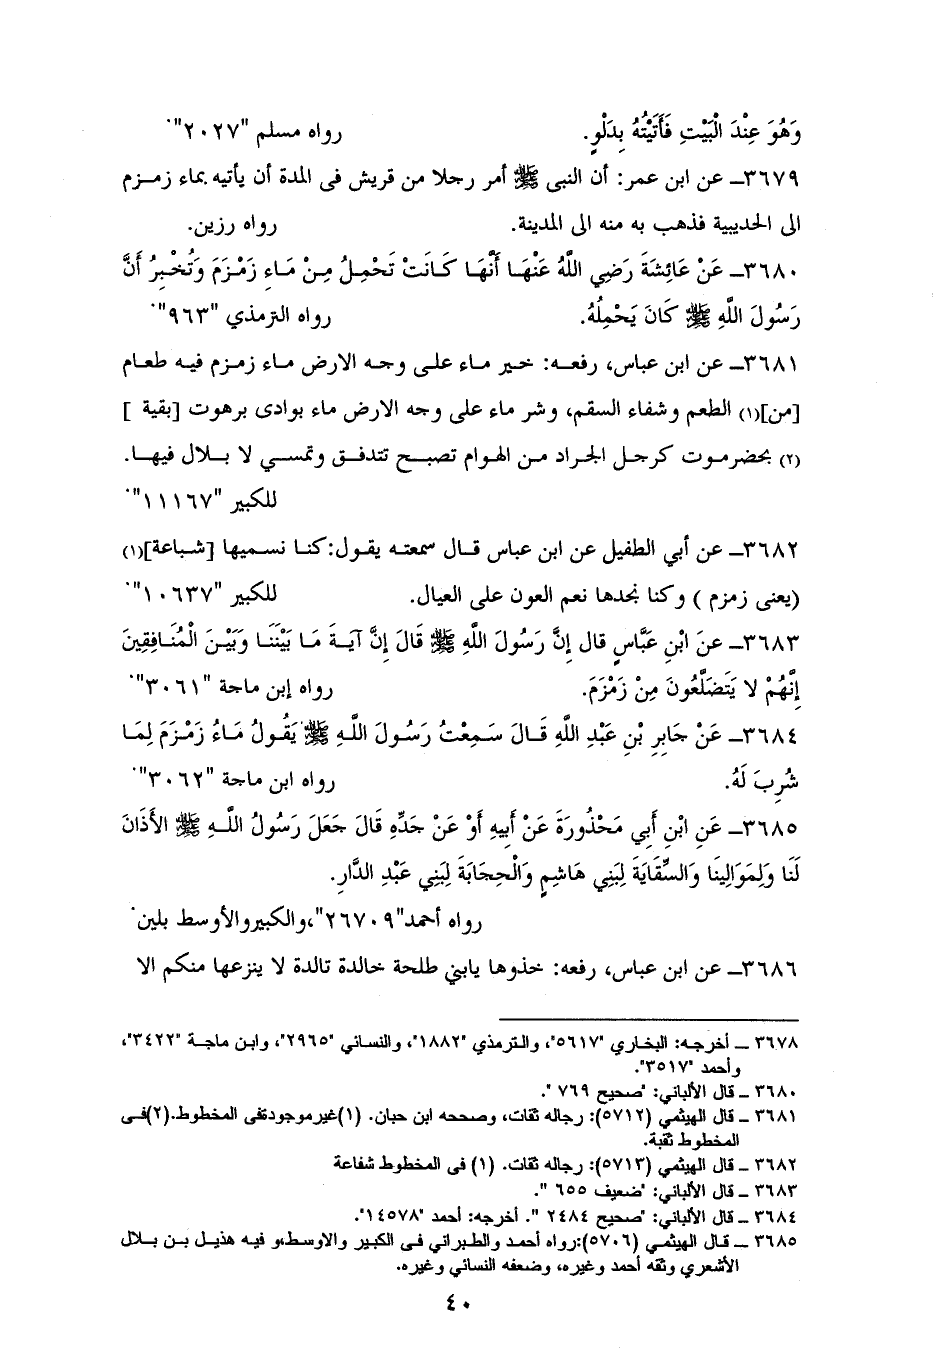 وَهُوَ عِنْدَ الْبَيْتِ فَأَتَيْتُهُ بِدَلْوٍ. رواه مسلم "٢٠٢٧".
٣٦٧٩ـ عن ابن عمر: أن النبى ﷺ أمر رجلا من قريش فى المدة أن يأتيه بماء زمـزم
الى الحديبية فذهب به منه الى المدينة. رواه رزين.
٣٦٨٠ـ عَنْ عَائِشَةَ رَضِي اللَّهُ عَنْهَا أَنَّهَا كَانَتْ تَحْمِلُ مِنْ مَاءِ زَمْزَمَ وَتُخْبِرُ أَنَّ
رَسُولَ اللَّهِ ﷺ كَانَ يَحْمِلُهُ. رواه الترمذي "٩٦٣".
٣٦٨١ـ عن ابن عباس، رفعـه: خير ماء على وجه الارض ماء زمزم فيه طعام
[من](١) الطعم وشفاء السقم، وشر ماء على وجه الارض ماء بوادى برهوت [بقية ]
(٢) بحضرموت كرجل الجراد مـن الهوام تصبـح تتدفـق وتمسـي لا بـلال فيهـا.
للكبير "١١١٦٧".
٣٦٨٢ـ عن أبي الطفيل عن ابن عباس قـال سمعته يقول:كنا نسميها [شباعة](١)
(يعنى زمزم ) وكنا نجدها نعم العون على العيال. للكبير "١٠٦٣٧".
٣٦٨٣ـ عنَ ابْنِ عَبَّاسٍ قال إِنَّ رَسُولَ اللَّهِ ﷺ قَالَ إِنَّ آيَـةَ مَا بَيْنَنَا وَبَيْنَ الْمُنَافِقِينَ
إِنَّهُمْ لا يَتَضَلَّعُونَ مِنْ زَمْزَمَ. رواه إبن ماجة "٣٠٦١".
٣٦٨٤ـ عَنْ جَابِرِ بْنِ عَبْدِ اللَّهِ قَـالَ سَـمِعْتُ رَسُولَ اللَّـهِ ﷺ يَقُولُ مَاءُ زَمْزَمَ لِمَـا
شُرِبَ لَهُ. رواه ابن ماجة "٣٠٦٢".
٣٦٨٥ـ عَنِ ابْنِ أَبِي مَحْذُورَةَ عَنْ أَبِيهِ أَوْ عَنْ جَدِّهِ قَالَ جَعَلَ رَسُولُ اللَّـهِ ﷺ الأَذَانَ
لَنَا وَلِمَوَالِينَا وَالسِّقَايَةَ لِبَنِي هَاشِمٍ وَالْحِجَابَةَ لِبَنِي عَبْدِ الدَّارِ.
رواه أحمد"٢٦٧٠٩"،والكبيروالأوسط بلين.
٣٦٨٦ـ عن ابن عباس، رفعه: خذوها يابني طلحة خالدة تالدة لا ينزعها منكم الا
٣٦٧٨ ـ أخرجـه: البخاري "٥٦١٧"، والترمذي "١٨٨٢"، والنسائي "٢٩٦٥"، وابـن ماجـة "٣٤٢٢"،
وأحمد "٣٥١٧".
٣٦٨٠ ـ قال الألباني: "صحيح ٧٦٩ ".
٣٦٨١ ـ قال الهيثمي (٥٧١٢): رجاله ثقات، وصححه ابن حبان. (١)غيرموجودةفى المخطوط.(٢)فـى
المخطوط ثقبة.
٣٦٨٢ ـ قال الهيثمي (٥٧١٣): رجاله ثقات. (١) فى المخطوط شفاعة
٣٦٨٣ ـ قال الألباني: "ضعيف ٦٥٥ ".
٣٦٨٤ ـ قال الألباني: "صحيح ٢٤٨٤ ". أخرجه: أحمد "١٤٥٧٨".
٣٦٨٥ ـ قـال الهيثمي (٥٧٠٦):رواه أحمد والطبراني فـى الكبير والاوسط،و فيه هذيـل بـن بـلال
الأشعري وثقه أحمد وغيره، وضعفه النسائي وغيره.
٤٠